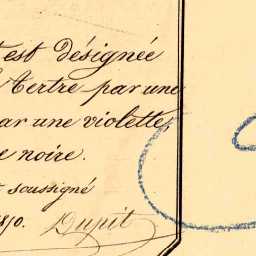 est désignée
Tertre par une
par une violette,
e noire.
soussigné
Dupit